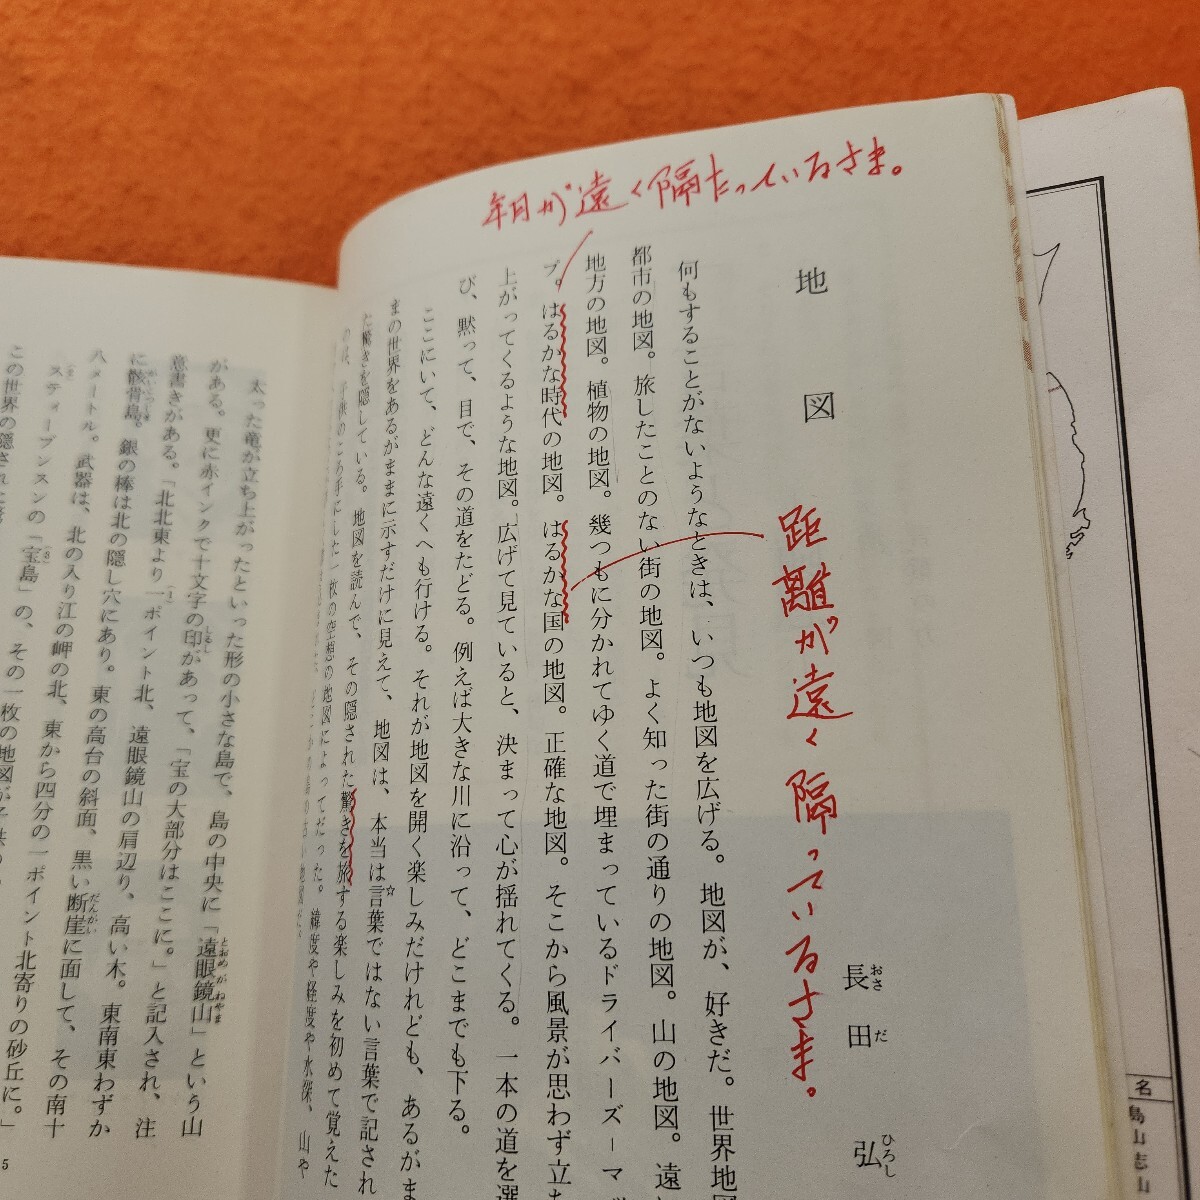 年月が遠く隔たっているさま。
地図
距離が遠く隔っているさま。
長田弘
おさだひろし
何もすることがないようなときは、いつも地図を広げる。地図が、好きだ。世界地図
都市の地図。旅したことのない街の地図。よく知った街の通りの地図。山の地図。遠
地方の地図。植物の地図。幾つもに分かれてゆく道で埋まっているドライバーズ＝マッ
プ。はるかな時代の地図。はるかな国の地図。正確な地図。そこから風景が思わず立ち
上がってくるような地図。広げて見ていると、決まって心が揺れてくる。一本の道を選
び、黙って、目で、その道をたどる。例えば大きな川に沿って、どこまでも下る。
ここにいて、どんな遠くへも行ける。それが地図を開く楽しみだけれども、あるがま
まの世界をあるがままに示すだけに見えて、地図は、本当は☆言葉ではない言葉で記され
た驚きを隠している。地図を読んで、その隠された驚きを旅する楽しみを初めて覚えた
のは、子供のころ手にした一枚の空想の地図によってだった。緯度や経度や水深、山や
太った竜が立ち上がったといった形の小さな島で、島の中央に「遠眼鏡山」という山
とおめがねやま
がある。更に赤インクで十文字の印があって、「宝の大部分はここに。」と記入され、注
しるし
意書きがある。「北北東より一ポイント北、遠眼鏡山の肩辺り、高い木。東南東わずか
に骸骨島。銀の棒は北の隠し穴にあり。東の高台の斜面、黒い断崖に面して、その南十
がいこつ
だんがい
八メートル。武器は、北の入り江の岬の北、東から四分の一ポイント北寄りの砂丘に。」
スティーブンスンの「宝島」の、その一枚の地図が
この世界の隠された
5
名
島山志山